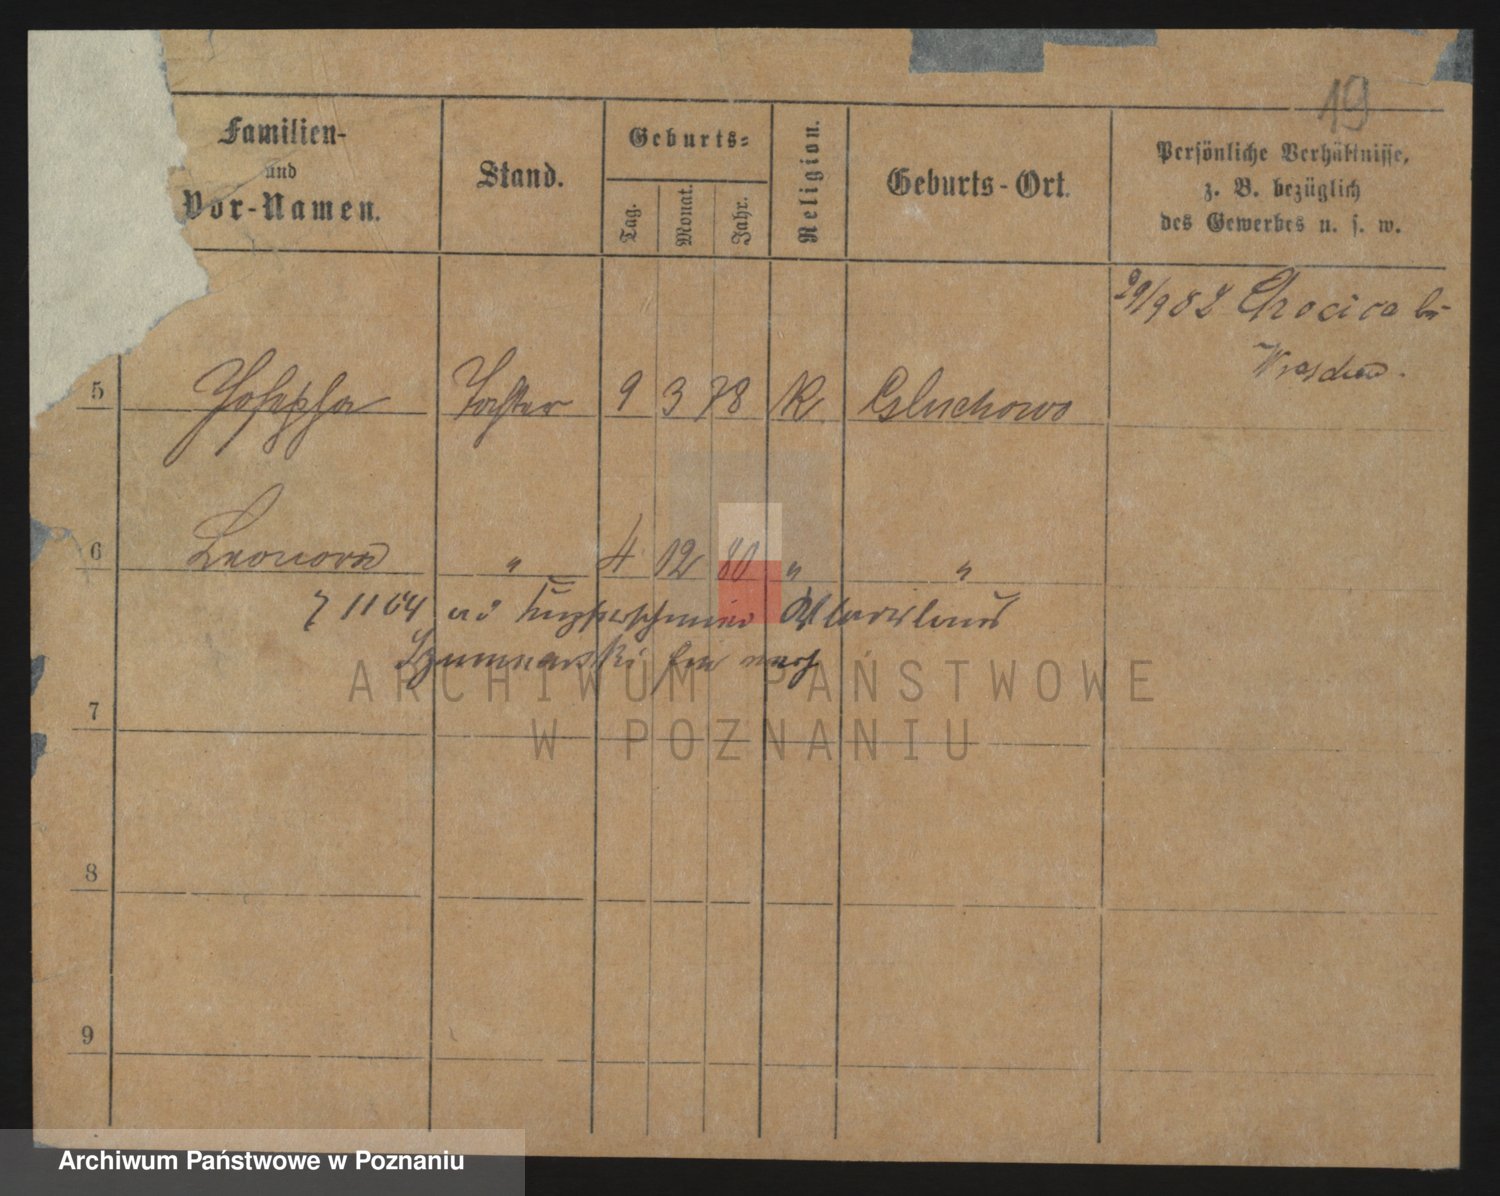 19
Familien-
und
Vor-Namen.
Stand.
Geburts-
Tag.
Monat.
Jahr.
Religion.
Geburts-Ort.
Persönliche Verhältnisse,
z. B. bezüglich
des Gewerbes u. s. w.
29/9 82 Chocica bei
Wreschen.
5 Josepha Tochter 9 3 78 K Gluchowo
6 Leonora " 4 12 80 " "
7 11 04 Kupferschmied Wladislaus
7
8
9
ARCHIWUM PAŃSTWOWE
W POZNANIU
Archiwum Państwowe w Poznaniu